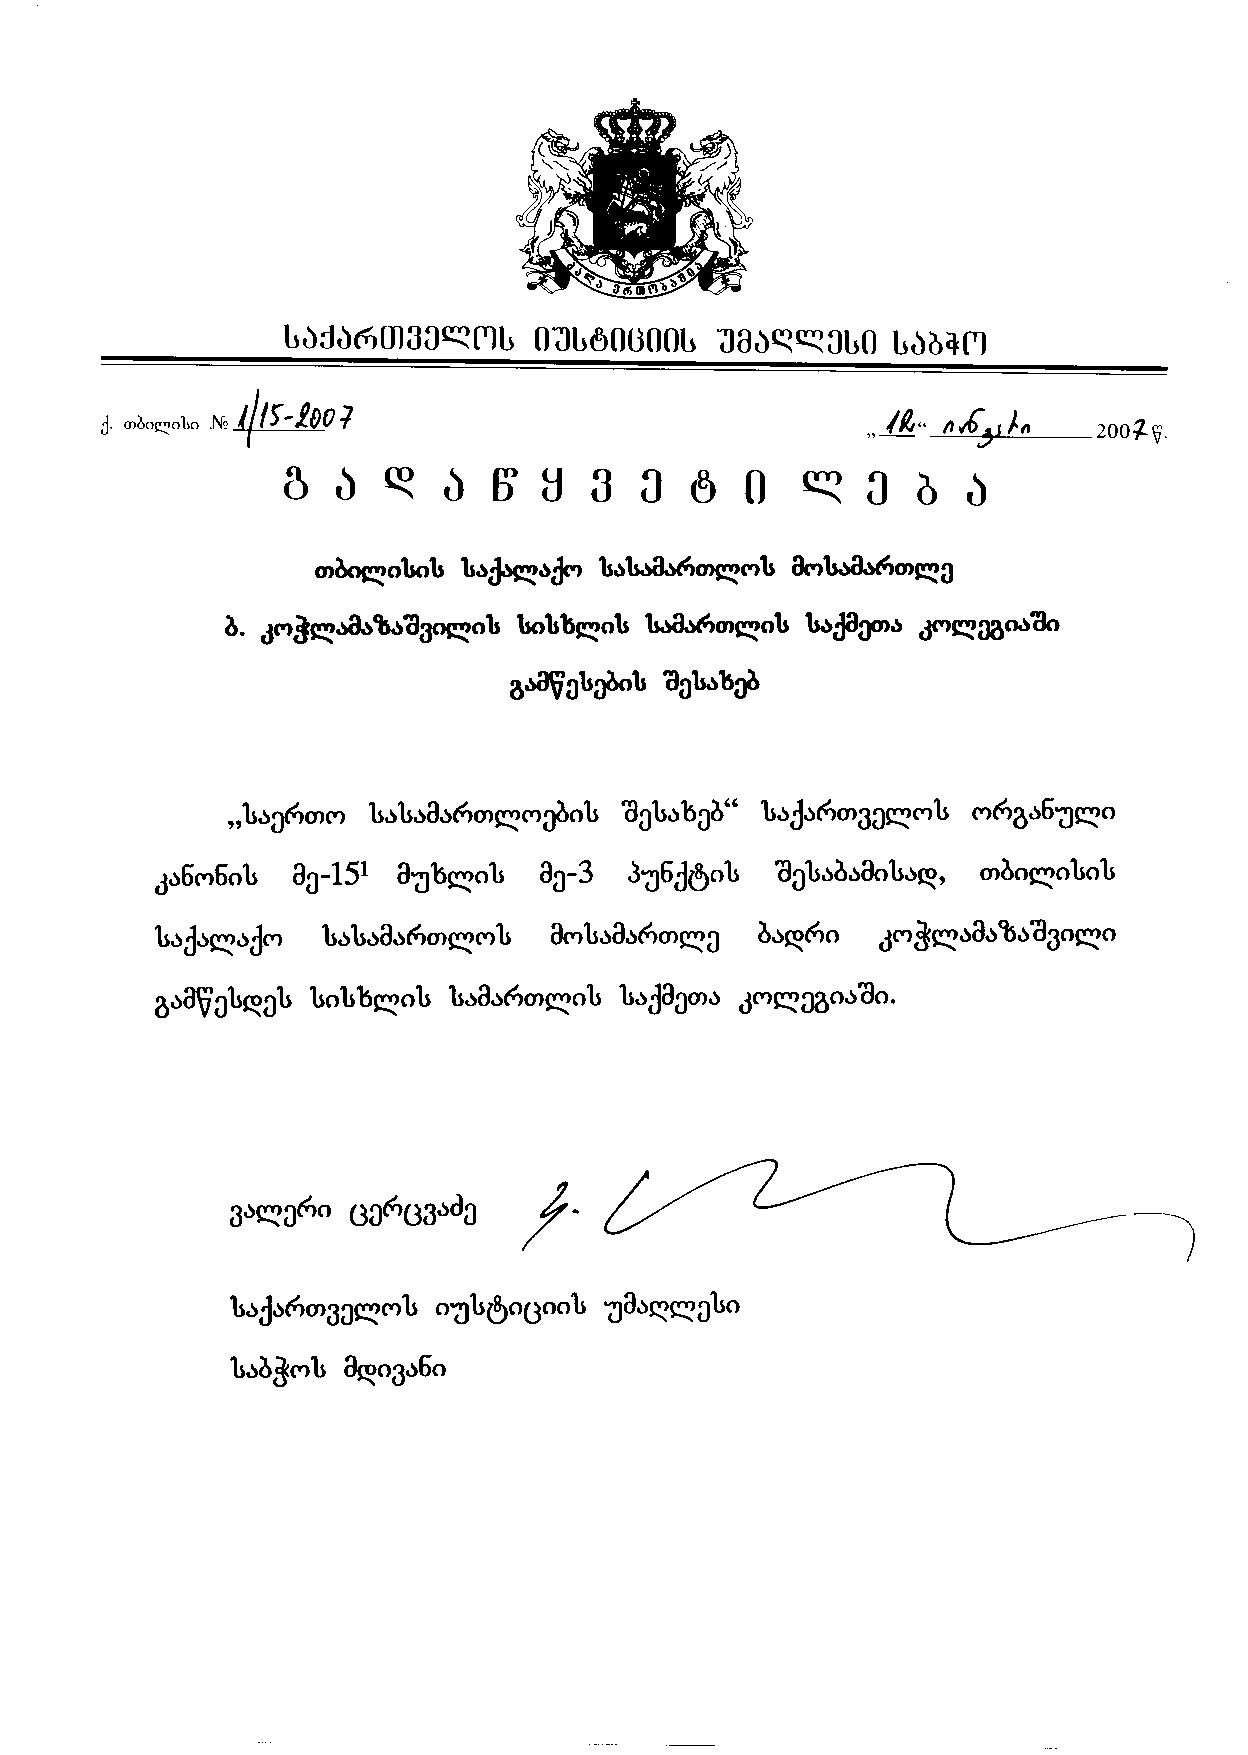 ძალა ერთობაშია
საქართველოს იუსტიციის უმაღლესი საბჭო
ქ. თბილისი № 1/15-2007 „12“ იანვარი 2007 წ.
გ ა დ ა წ ყ ვ ე ტ ი ლ ე ბ ა
თბილისის საქალაქო სასამართლოს მოსამართლე
ბ. კოჭლამაზაშვილის სისხლის სამართლის საქმეთა კოლეგიაში
გამწესების შესახებ
„საერთო სასამართლოების შესახებ“ საქართველოს ორგანული
კანონის მე-15¹ მუხლის მე-3 პუნქტის შესაბამისად, თბილისის
საქალაქო სასამართლოს მოსამართლე ბადრი კოჭლამაზაშვილი
გამწესდეს სისხლის სამართლის საქმეთა კოლეგიაში.
ვალერი ცერცვაძე
საქართველოს იუსტიციის უმაღლესი
საბჭოს მდივანი